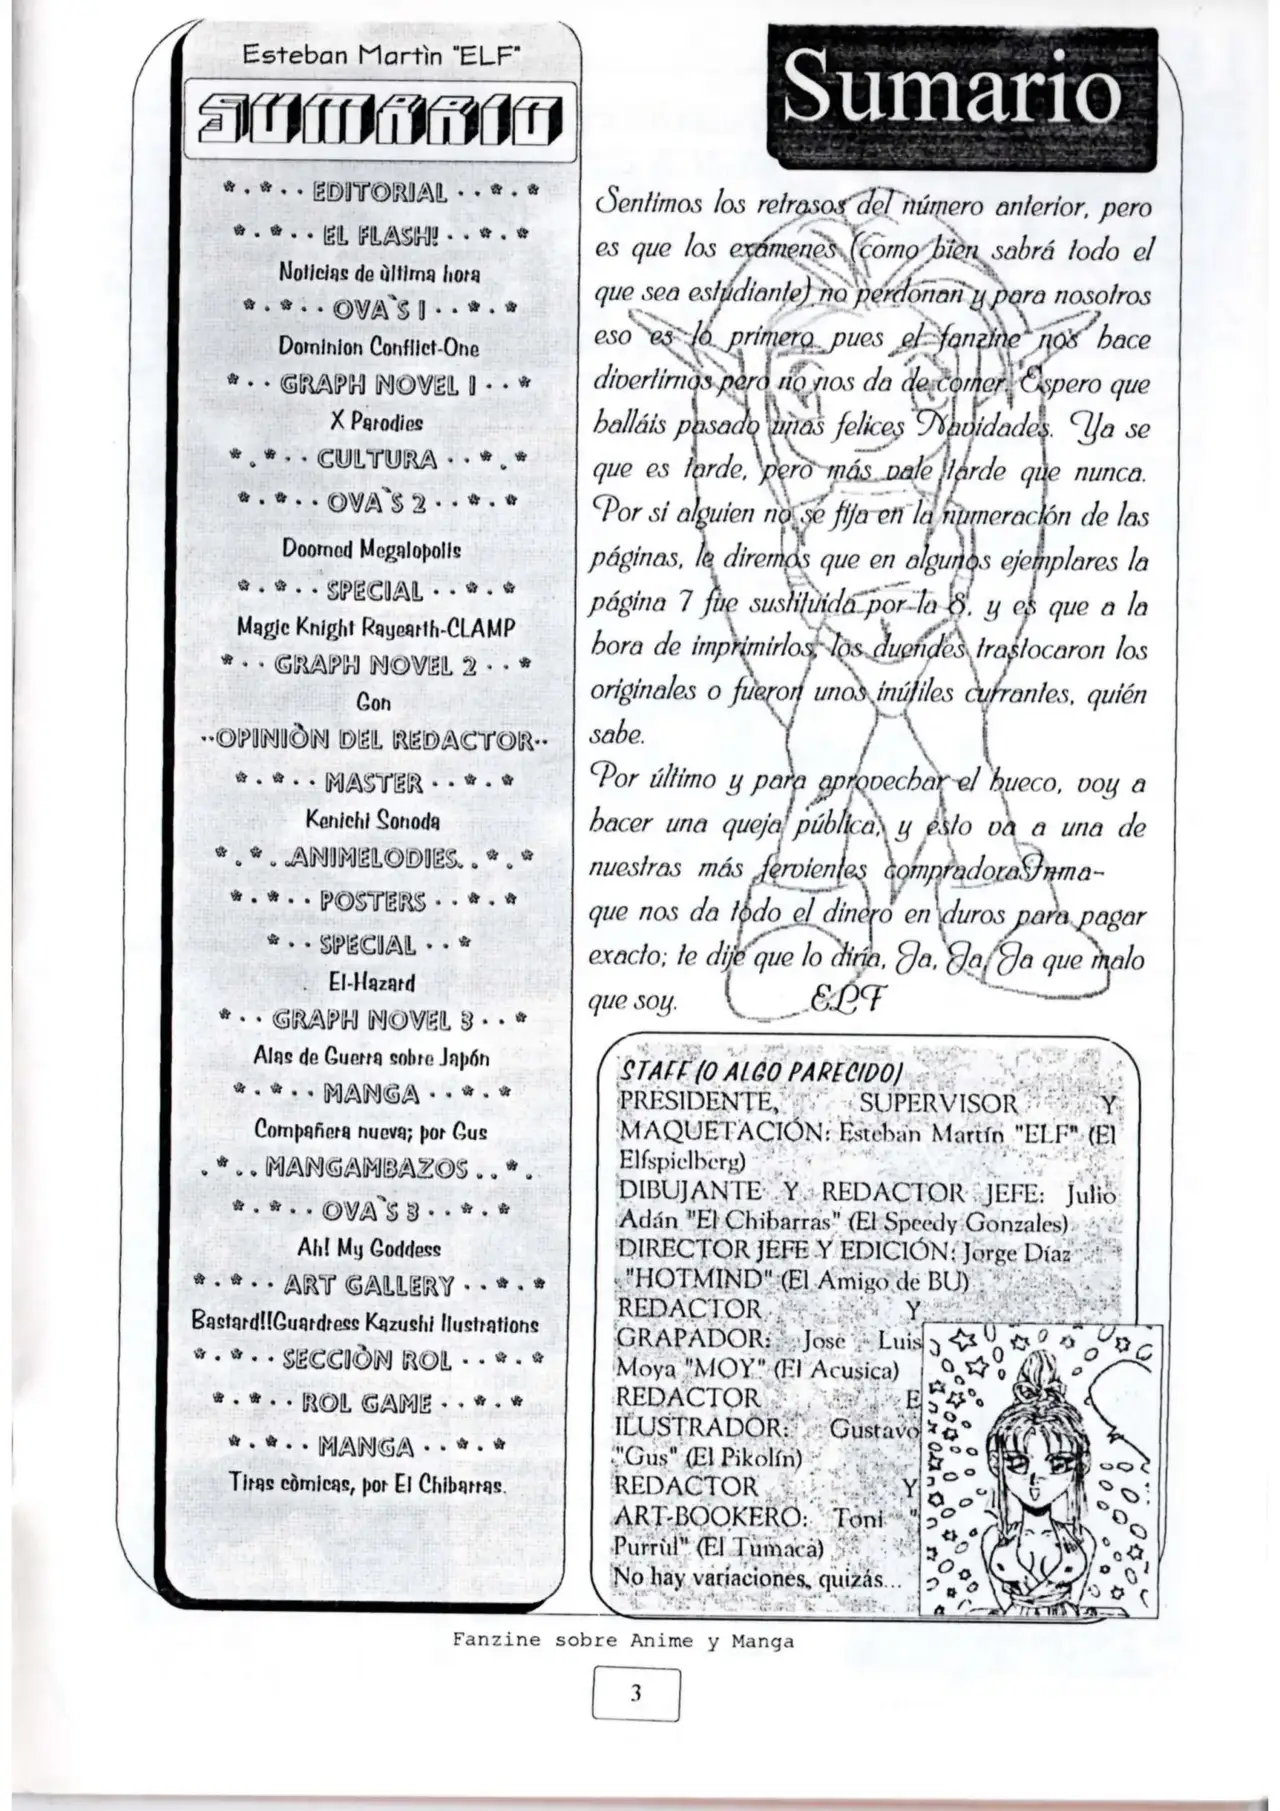 Esteban Martìn "ELF"
SUMARIO
*.*..EDITORIAL..*.*
*.*..EL FLASH!..*.*
Noticias de ùltima hora
*.*..OVA`S 1..*.*
Dominion Conflict-One
*..GRAPH NOVEL 1..*
X Parodies
*.*..CULTURA..*.*
*.*..OVA`S 2..*.*
Doomed Megalopolis
*.*..SPECIAL..*.*
Magic Knight Rayearth-CLAMP
*..GRAPH NOVEL 2..*
Gon
..OPINIÒN DEL REDACTOR..
*.*..MASTER..*.*
Kenichi Sonoda
*.*..ANIMELODIES..*.*
*.*..POSTERS..*.*
*..SPECIAL..*
El-Hazard
*..GRAPH NOVEL 3..*
Alas de Guerra sobre Japón
*.*..MANGA..*.*
Compañera nueva; por Gus
.*..MANGAMBAZOS..*.
*.*..OVA`S 3..*.*
Ah! My Goddess
*.*..ART GALLERY..*.*
Bastard!!Guardress Kazushi Ilustrations
*.*..SECCIÒN ROL..*.*
*.*..ROL GAME..*.*
*.*..MANGA..*.*
Tiras còmicas, por El Chibarras.
Sumario
Sentimos los retrasos del número anterior, pero
es que los exámenes (como bien sabrá todo el
que sea estudiante) no perdonan y para nosotros
eso es lo primero pues el fanzine nos hace
divertirnos pero no nos da de comer. Espero que
halláis pasado unas felices Navidades. Ya se
que es tarde, pero más vale tarde que nunca.
Por si alguien no se fija en la numeración de las
páginas, le diremos que en algunos ejemplares la
página 7 fue sustituida por la 8, y es que a la
hora de imprimirlos, los duendes traslocaron los
originales o fueron unos inútiles currantes, quién
sabe.
Por último y para aprovechar el hueco, voy a
hacer una queja pública, y ésto va a una de
nuestras más fervientes compradoras Inma-
que nos da todo el dinero en duros para pagar
exacto; te dije que lo diría, Ja, Ja, Ja que malo
que soy. ELF
STAFF (O ALGO PARECIDO)
PRESIDENTE, SUPERVISOR Y
MAQUETACIÓN: Esteban Martín "ELF" (El
Elfspielberg)
DIBUJANTE Y REDACTOR JEFE: Julio
Adán "El Chibarras" (El Speedy Gonzales)
DIRECTOR JEFE Y EDICIÓN: Jorge Díaz
"HOTMIND" (El Amigo de BU)
REDACTOR Y
GRAPADOR: Jose Luis
Moya "MOY" (El Acusica)
REDACTOR E
ILUSTRADOR: Gustavo
"Gus" (El Pikolín)
REDACTOR Y
ART-BOOKERO: Toni "
Purrùl" (El Tumaca)
No hay variaciones, quizás...
Fanzine sobre Anime y Manga
3